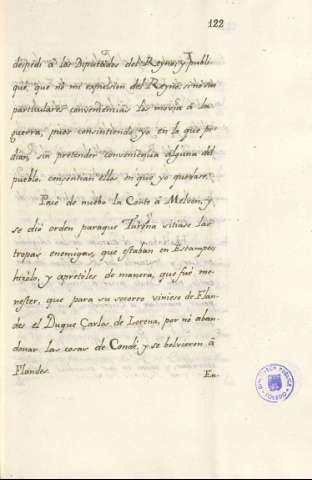 122
despidi à las Diputados del Reyno, y publi-
qué, que no mi expulsion del Reyno, si no sus
particulares conveniencias los movia à la
guerra, pues consintiendo yo en la que pe-
dian, sin pretender conveniencia alguna del
pueblo, consentian ellos en que yo quedase.
Pasó de nuebo la Corte à Meleun, y
se dió orden paraque Turena sitiase las
tropas enemigas, que estaban en Estampes
hizolo, y apretóles de manera, que fué me-
nester, que para su socorro viniese de Flan-
des el Duque Carlos de Lorena, por no aban-
donar las cosas de Condé, y se bolvieron à
Flandes.
En
BIBLIOTECA PUBLICA
TOLEDO